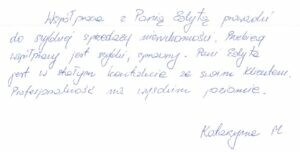 Współpraca z Panią Edytą prowadzi
do szybkiej sprzedaży nieruchomości. Przebieg
współpracy jest szybki, sprawny. Pani Edyta
jest w stałym kontakcie ze swoim klientem.
Profesjonalność na wysokim poziomie.
Katarzyna M